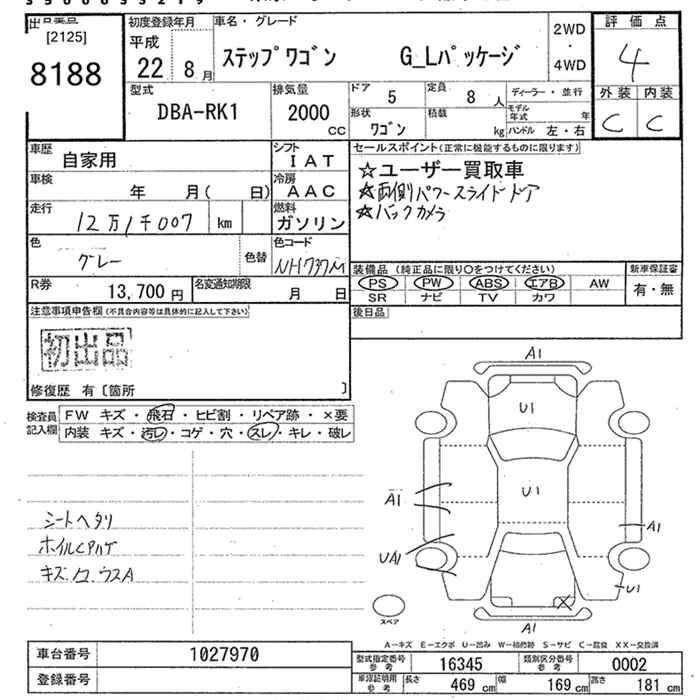 出品番号
[2125]
8188
初度登録年月
平成
22 8月
車名・グレード
ステップワゴン G_Lパッケージ
2WD
・
4WD
評価点
4
外装 内装
C C
型式
DBA-RK1
排気量
2000
CC
ドア
5
定員
8人
ディーラー・並行
形状
ワゴン
積載
kg
モデル年式 年
ハンドル 左・右
車歴
自家用
シフト
IAT
車検
年 月( 日)
冷房
AAC
走行
12万1千007 km
燃料
ガソリン
色
グレー
色替
色コード
NH737M
R券
13,700円
名変通知期限
月 日
セールスポイント(正常に機能するものに限ります)
☆ユーザー買取車
☆両側パワースライドドア
☆バックカメラ
装備品(純正品に限り○をつけてください)
PS PW ABS エアB AW
SR ナビ TV カワ
新車保証書
有・無
後日品
注意事項申告欄(不具合内容等は具体的に記入して下さい)
初出品
修復歴 有〔箇所 〕
検査員記入欄
FW キズ・飛石・ヒビ割・リペア跡・×要
内装 キズ・汚レ・コゲ・穴・スレ・キレ・破レ
シートヘタリ
ホイルCPハゲ
キズ.
ウスA
A1
U1
U1
A1
A1
UA1
U1
X
A1
スペア
A-キズ E-エクボ U-凹み W-補修跡 S-サビ C-腐食 XX-交換済
車台番号
1027970
登録番号
型式指定番号参考
16345
類別区分番号参考
0002
車庫証明用参考
長さ 469cm
幅 169cm
高さ 181cm